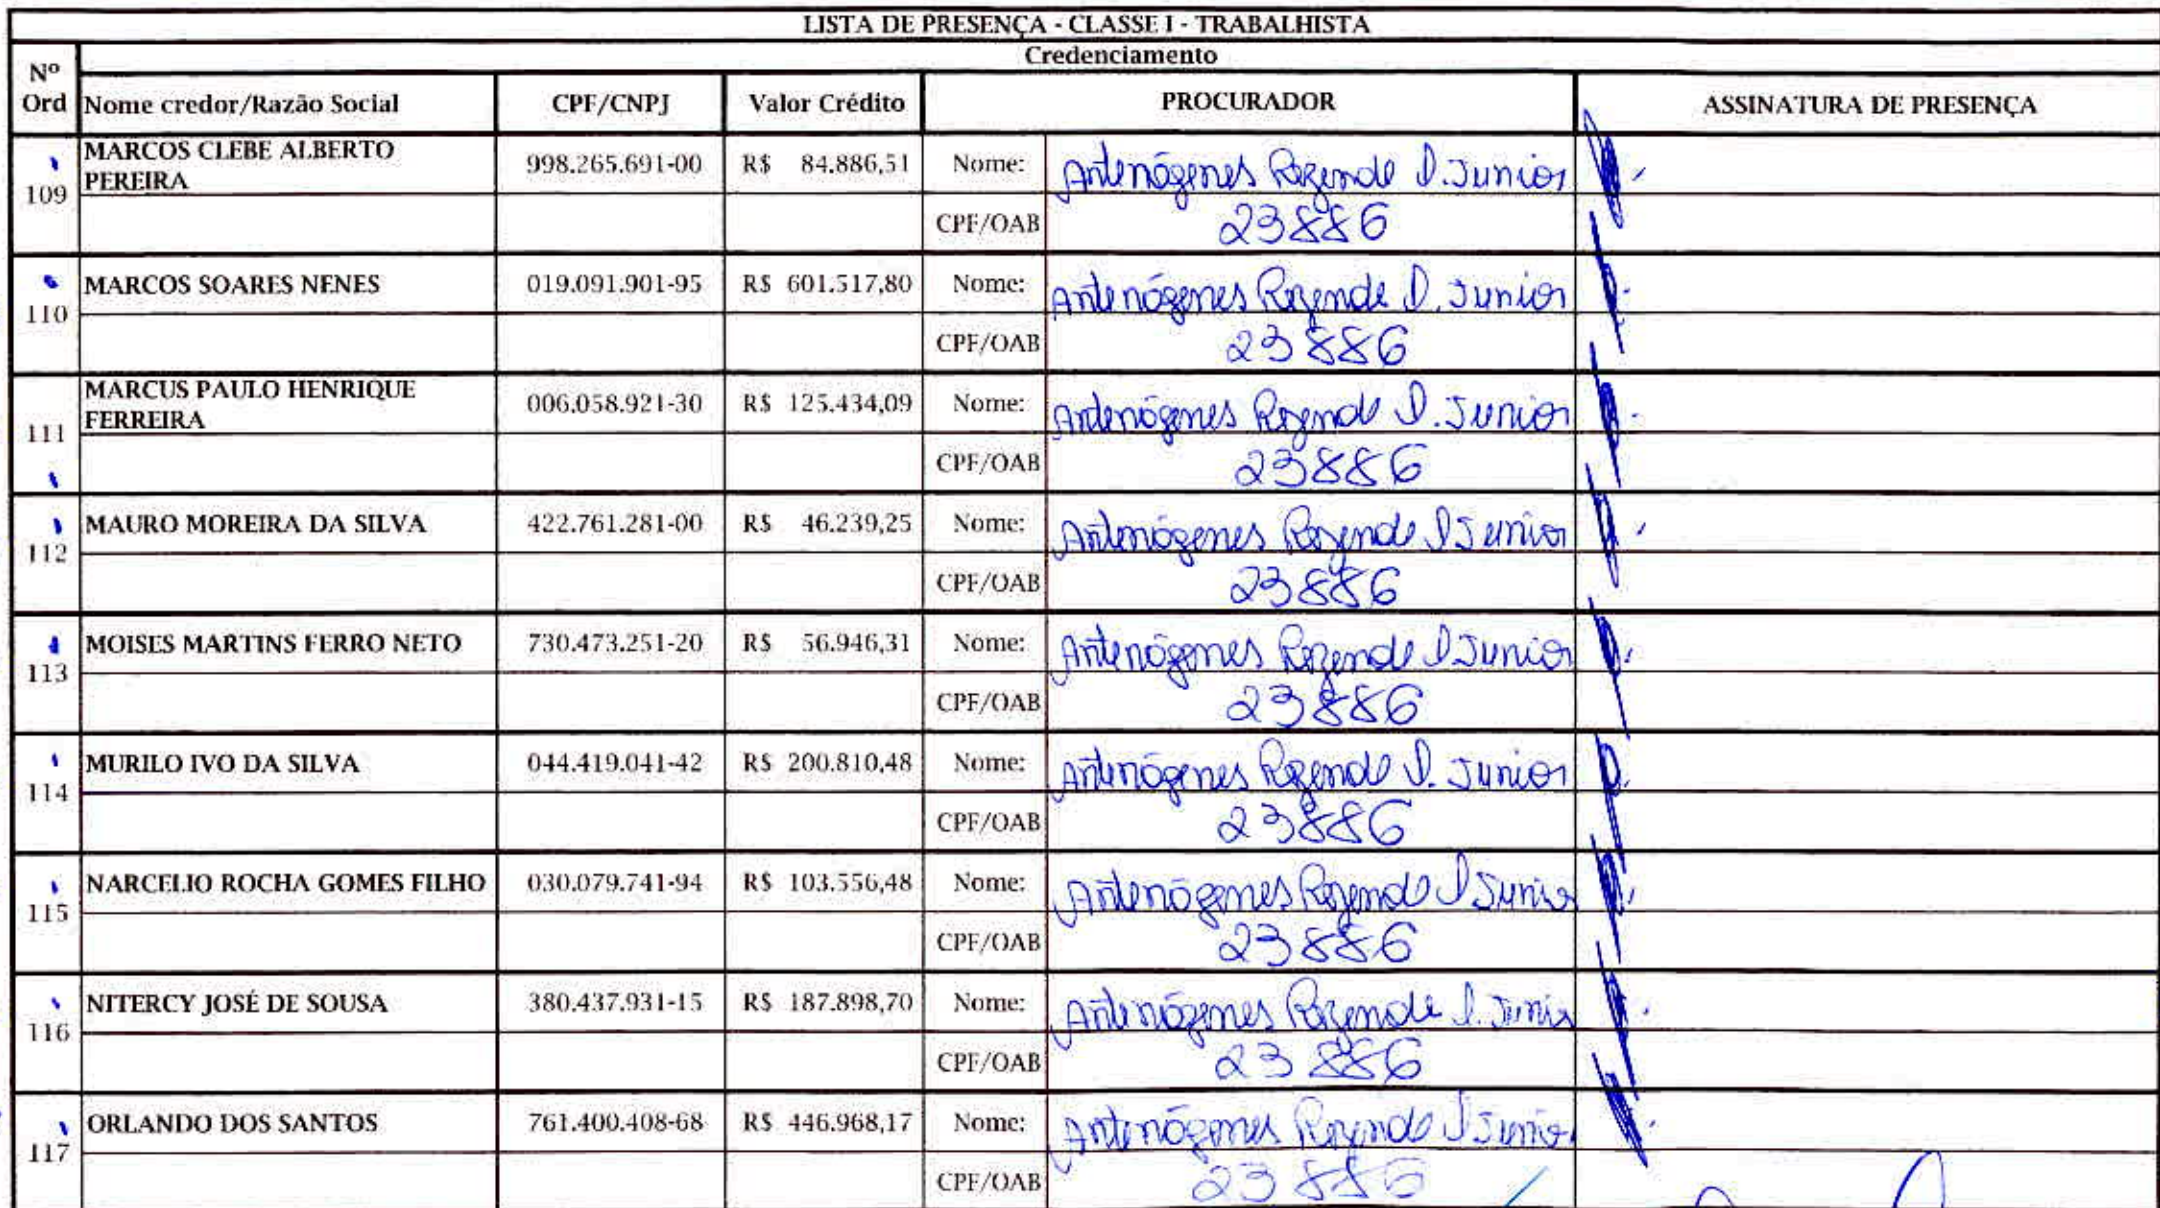 LISTA DE PRESENÇA - CLASSE I - TRABALHISTA
Credenciamento
Nº Ord Nome credor/Razão Social CPF/CNPJ Valor Crédito PROCURADOR ASSINATURA DE PRESENÇA
109 MARCOS CLEBE ALBERTO PEREIRA 998.265.691-00 R$ 84.886,51 Nome: Antenógenes Rezende D. Junior
CPF/OAB 23886
110 MARCOS SOARES NENES 019.091.901-95 R$ 601.517,80 Nome: Antenógenes Rezende D. Junior
CPF/OAB 23886
111 MARCUS PAULO HENRIQUE FERREIRA 006.058.921-30 R$ 125.434,09 Nome: Antenógenes Rezende D. Junior
CPF/OAB 23886
112 MAURO MOREIRA DA SILVA 422.761.281-00 R$ 46.239,25 Nome: Antenógenes Rezende D Junior
CPF/OAB 23886
113 MOISES MARTINS FERRO NETO 730.473.251-20 R$ 56.946,31 Nome: Antenógenes Rezende D Junior
CPF/OAB 23886
114 MURILO IVO DA SILVA 044.419.041-42 R$ 200.810,48 Nome: Antenógenes Rezende D. Junior
CPF/OAB 23886
115 NARCELIO ROCHA GOMES FILHO 030.079.741-94 R$ 103.556,48 Nome: Antenógenes Rezende D Junior
CPF/OAB 23886
116 NITERCY JOSÉ DE SOUSA 380.437.931-15 R$ 187.898,70 Nome: Antenógenes Rezende D. Junior
CPF/OAB 23886
117 ORLANDO DOS SANTOS 761.400.408-68 R$ 446.968,17 Nome: Antenógenes Rezende D Junior
CPF/OAB 23886